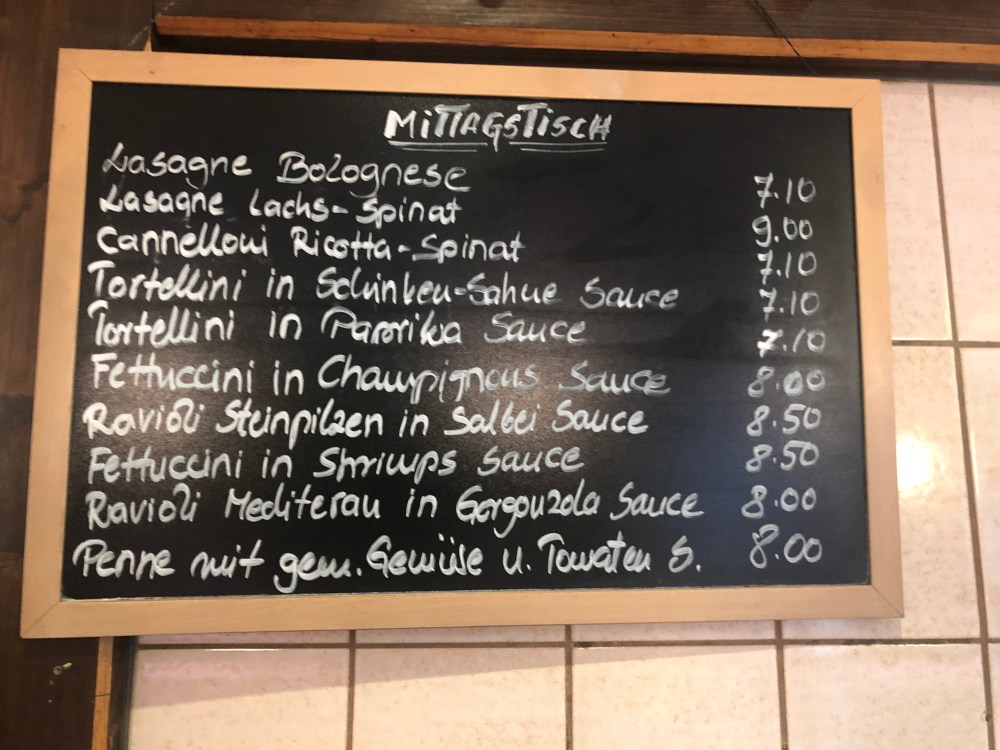 MITTAGSTISCH
Lasagne Bolognese 7.10
Lasagne Lachs-Spinat 9.00
Cannelloni Ricotta-Spinat 7.10
Tortellini in Schinken-Sahne Sauce 7.10
Tortellini in Paprika Sauce 7.10
Fettuccini in Champignons Sauce 8.00
Ravioli Steinpilzen in Salbei Sauce 8.50
Fettuccini in Shrimps Sauce 8.50
Ravioli Mediteran in Gorgonzola Sauce 8.00
Penne mit gem. Gemüse u. Tomaten S. 8.00